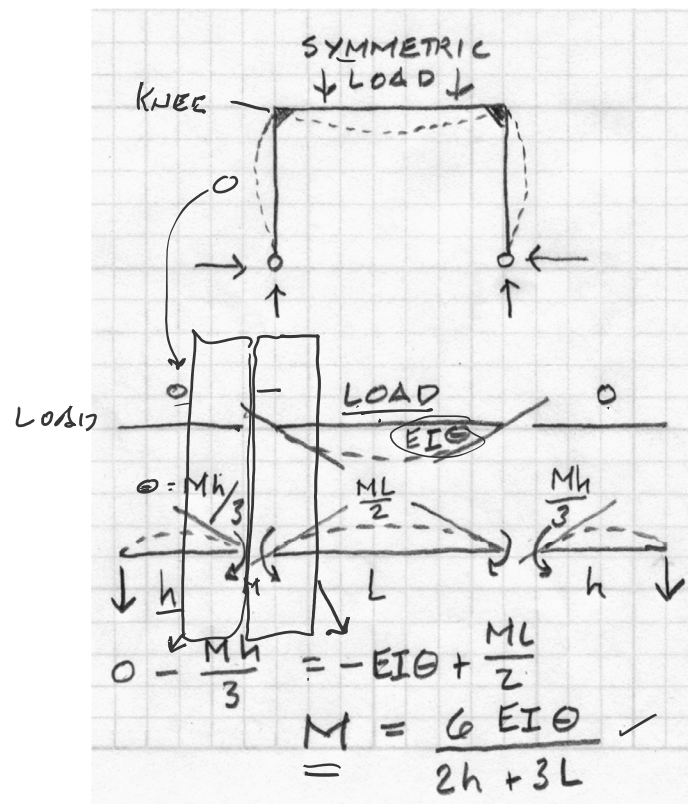 SYMMETRIC
LOAD
KNEE
O
O — LOAD O
LOAD
EIΘ
Θ = Mh/3 ML/2 Mh/3
M
h L h
O - Mh/3 = -EIΘ + ML/2
M = 6 EIΘ / 2h + 3L ✓